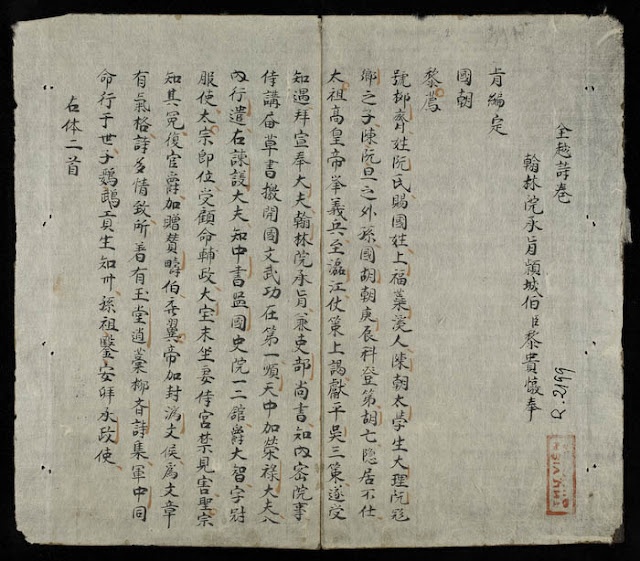 全越詩卷
翰林院承旨頴城伯臣黎貴惇奉
R.2199
旨編定
國朝
黎廌
號抑齋姓阮氏賜國姓上福蘂溪人陳朝太學生大理阮飛
卿之子陳阮旦之外孫國胡朝庚辰科登第胡亡隐居不仕
太祖高皇帝举義兵至瀘江仗策上謁獻平吳三策遂受
知遇拜宣奉大夫翰林院承旨兼吏部尚書知內密院事
侍講幄草書檄開國文武功在第一順天中加榮祿大夫入
內行遣右諫議大夫知中書監國史院一三舘爵大智字冠
服使太宗即位受顧命輔政大宝末坐妻侍宮禁見害聖宗
知其冤復官爵加贈賛疇伯襄翼帝加封济文侯爲文章
有氣格詩多情致所著有玉堂遺藁抑斉詩集軍中同
命行于世子鸚鵡貢生知州孫祖鑒安邦承政使
右体二首